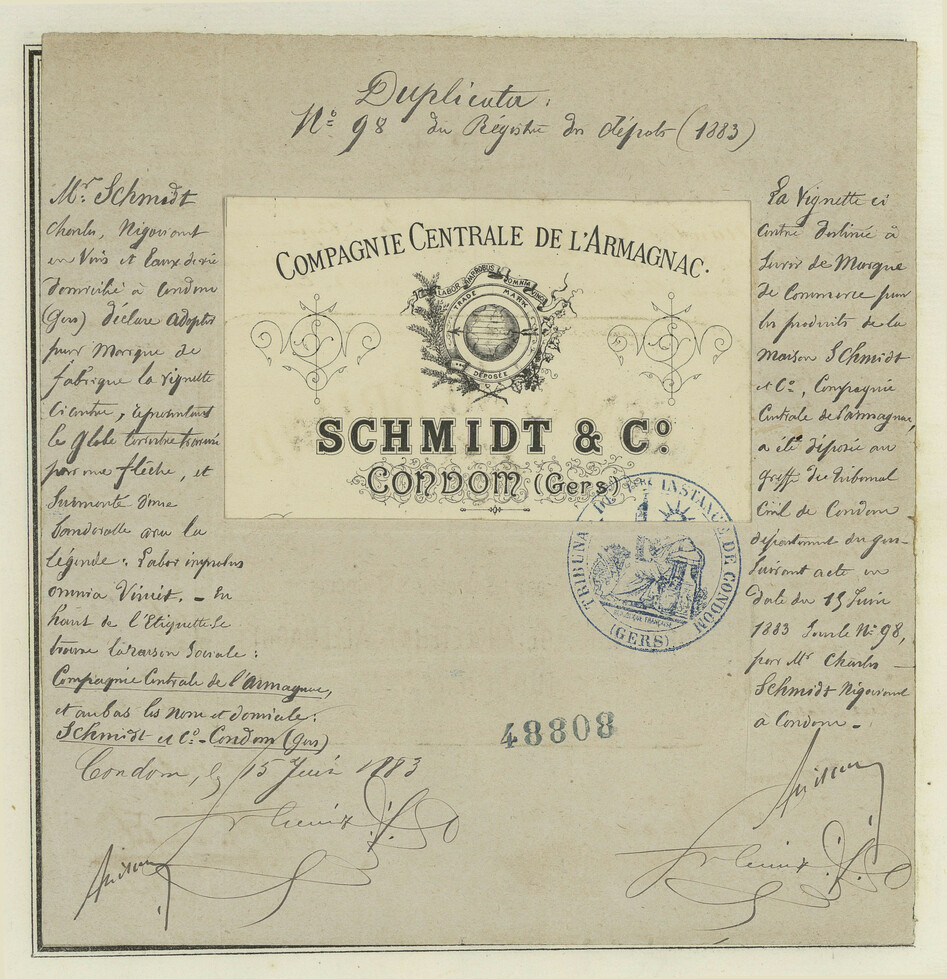 Duplicata.
N° 98 du Régistre des dépots (1883)
Mr. Schmidt
Charles, Négociant
en Vins et Eaux de vie
domicilié à Condom
(Gers) déclare adopter
pour Marque de
fabrique la vignette
ci contre, représentant
le globe terrestre traversé
par une flèche, et
Surmonté d'une
banderolle avec la
légende: Labor improbus
omnia Vincit. - En
haut de l'Etiquette se
trouve la raison Sociale:
Compagnie Centrale de l'Armagnac,
et au bas les nom et domicile:
Schmidt et Co. - Condom (Gers)
Condom, le 15 Juin 1883
COMPAGNIE CENTRALE DE L'ARMAGNAC.
LABOR IMPROBUS OMNIA VINCIT
TRADE MARK
DÉPOSÉE
SCHMIDT & Co.
CONDOM (Gers)
TRIBUNAL DE 1ERE INSTANCE DE CONDOM
RÉPUBLIQUE FRANÇAISE
(GERS)
48808
La Vignette ci
contre destinée à
Servir de Marque
de Commerce pour
les produits de la
maison Schmidt
et Co, Compagnie
Centrale de l'armagnac,
a été déposée au
greffe du Tribunal
Civil de Condom
département du gers
Suivant acte en
date du 15 Juin
1883 Sous le N° 98,
par Mr Charles
Schmidt Négociant
a Condom -